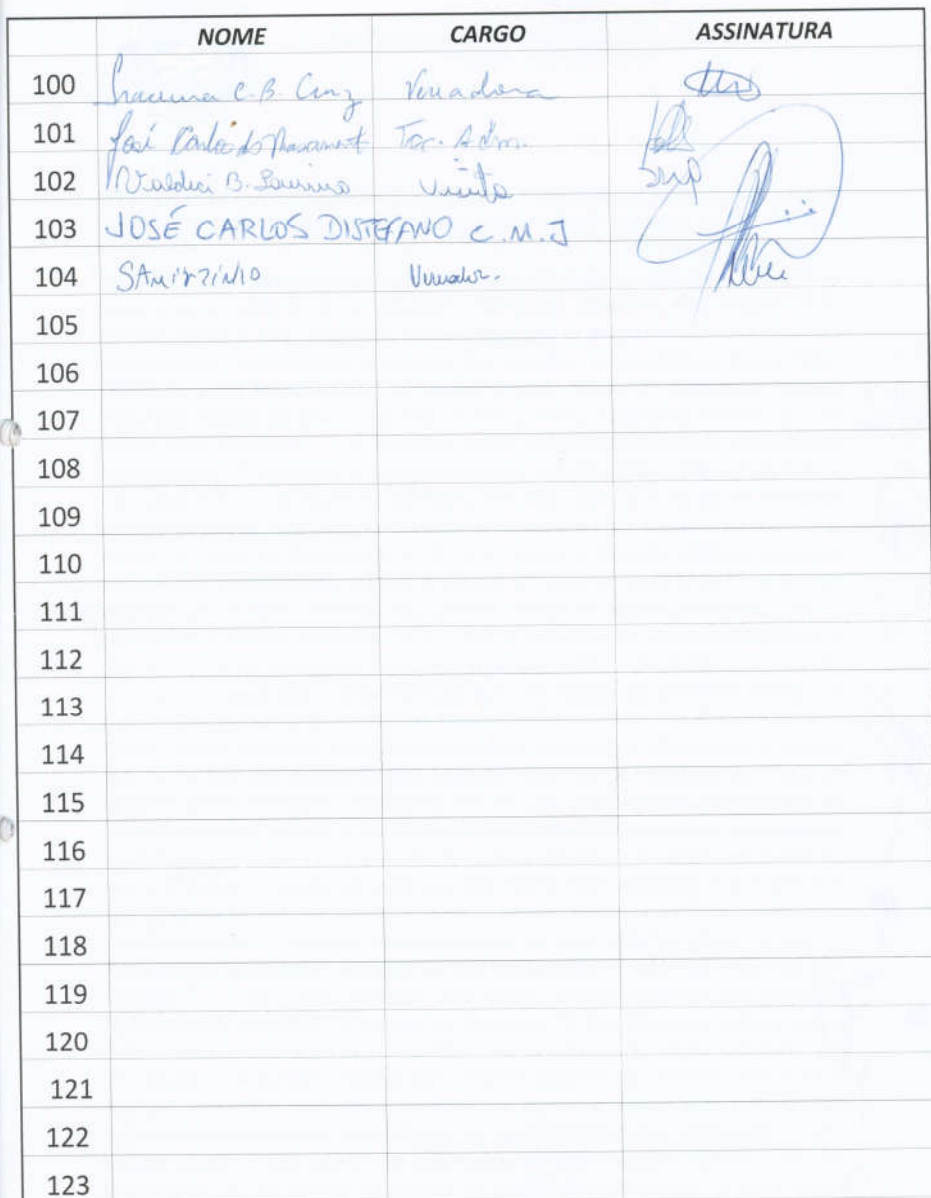 NOME CARGO ASSINATURA
100 C. B. Cruz Vereadora
101 José Carlos do Tec. Adm.
102 Valdeci B. Visita
103 JOSÉ CARLOS DISTEFANO C.M.J
104 Vereador.
105
106
107
108
109
110
111
112
113
114
115
116
117
118
119
120
121
122
123